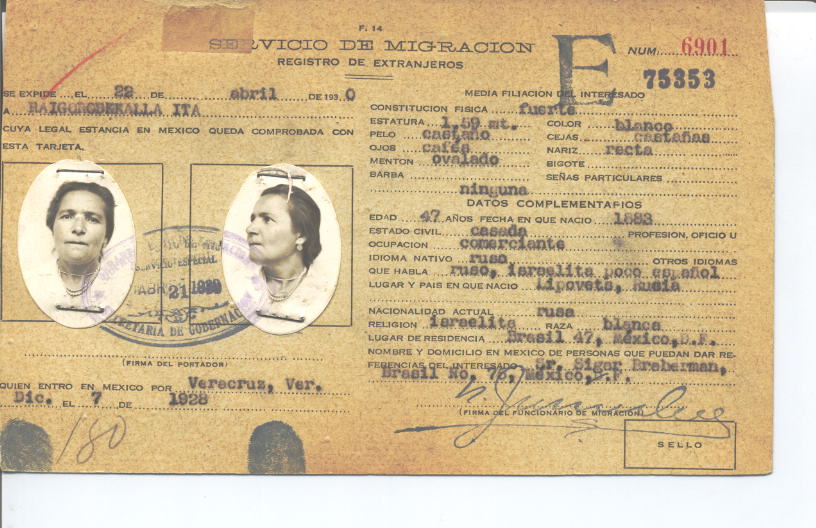 F. 14
SERVICIO DE MIGRACION
REGISTRO DE EXTRANJEROS
E
NUM. 6901
75353
SE EXPIDE EL 22 DE abril DE 1930
A RAIGORODEKALLA ITA
CUYA LEGAL ESTANCIA EN MEXICO QUEDA COMPROBADA CON
ESTA TARJETA.
SERVICIO ESPECIAL
ABR 21 1930
SECRETARIA DE GOBERNACION
(FIRMA DEL PORTADOR)
QUIEN ENTRO EN MEXICO POR Veracruz, Ver.
Dic. EL 7 DE 1928
180
MEDIA FILIACION DEL INTERESADO
CONSTITUCION FISICA fuerte
ESTATURA 1.59 mt. COLOR blanco
PELO castaño CEJAS castañas
OJOS cafés NARIZ recta
MENTON ovalado BIGOTE
BARBA SEÑAS PARTICULARES
ninguna
DATOS COMPLEMENTARIOS
EDAD 47 AÑOS FECHA EN QUE NACIO 1883
ESTADO CIVIL casada PROFESION, OFICIO U
OCUPACION comerciante
IDIOMA NATIVO ruso OTROS IDIOMAS
QUE HABLA ruso, israelita poco español
LUGAR Y PAIS EN QUE NACIO Lipovets, Rusia
NACIONALIDAD ACTUAL rusa
RELIGION israelita RAZA blanca
LUGAR DE RESIDENCIA Brasil 47, México, D.F.
NOMBRE Y DOMICILIO EN MEXICO DE PERSONAS QUE PUEDAN DAR RE-
FERENCIAS DEL INTERESADO Sr. Sigar Breberman,
Brasil No, 76, México, D.F.
(FIRMA DEL FUNCIONARIO DE MIGRACION)
SELLO